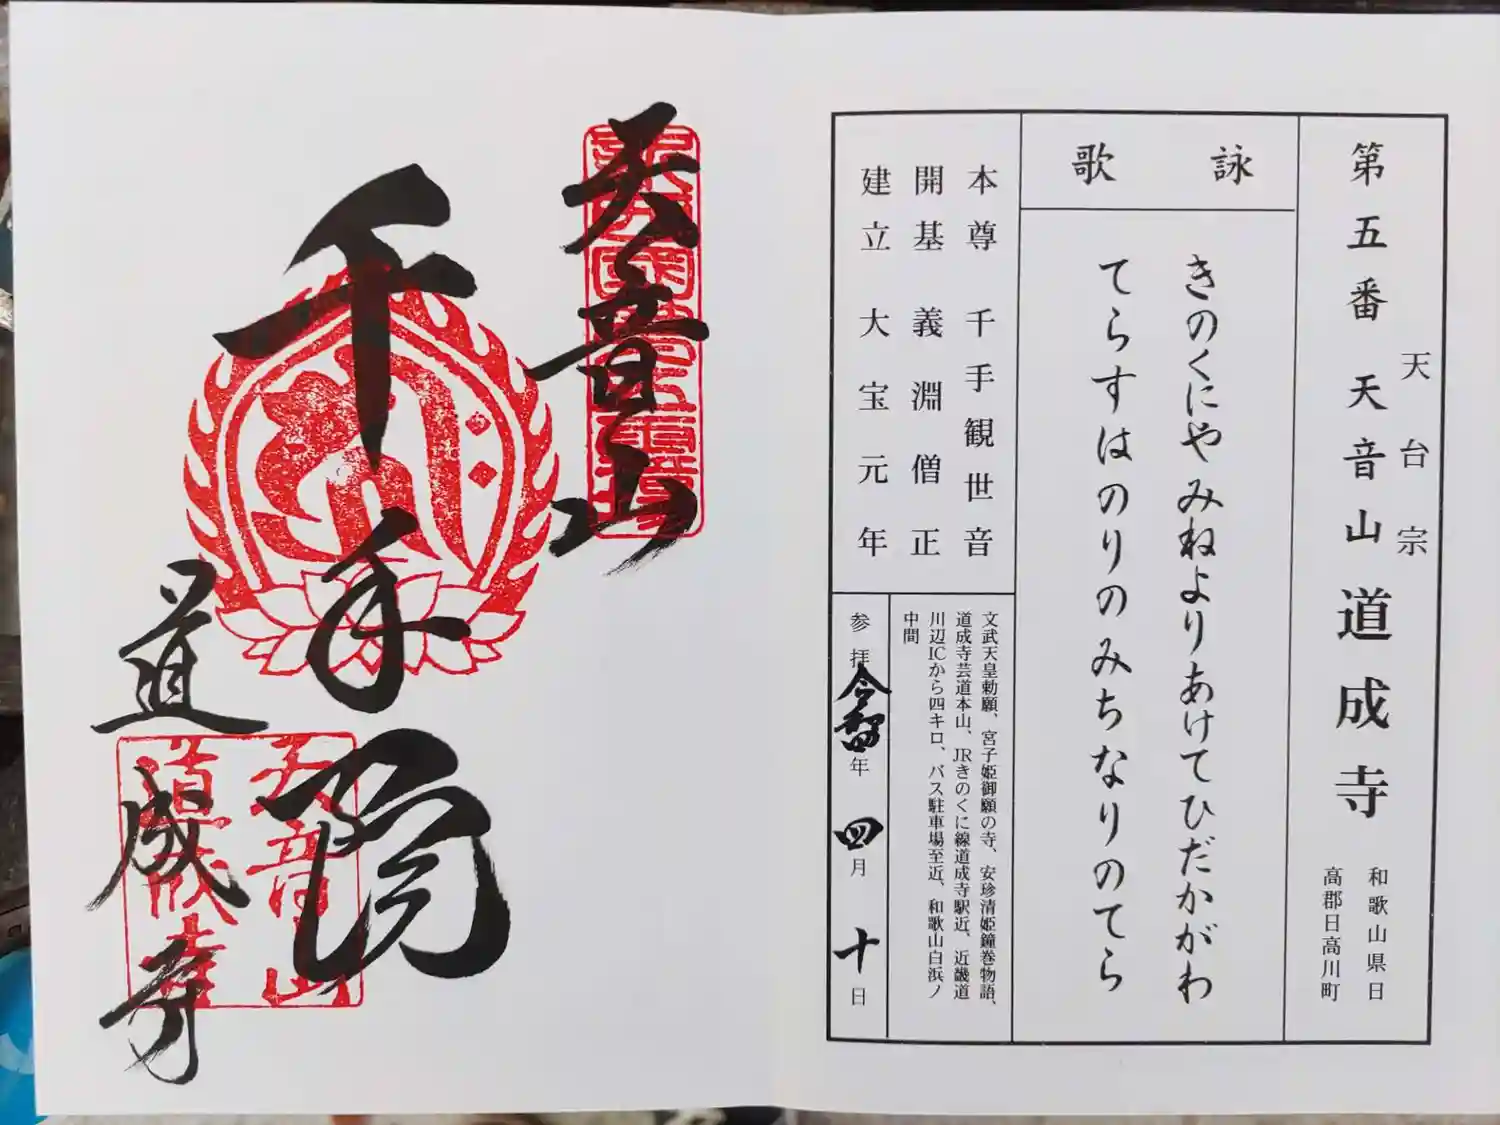 第五番 天音山 道成寺
天台宗
和歌山県日
高郡日高川町
詠歌
きのくにやみねよりあけてひだかがわ
てらすはのりのみちなりのてら
本尊 千手観世音
開基 義淵僧正
建立 大宝元年
文武天皇勅願、宮子姫御願の寺、安珍清姫鐘巻物語、
道成寺芸道本山、JRきのくに線道成寺駅近、近畿道
川辺ICから四キロ、バス駐車場至近、和歌山白浜ノ
中間
参拝 令和四年 四月 十日
天音山
千手閣
道成寺
天音山
道成寺